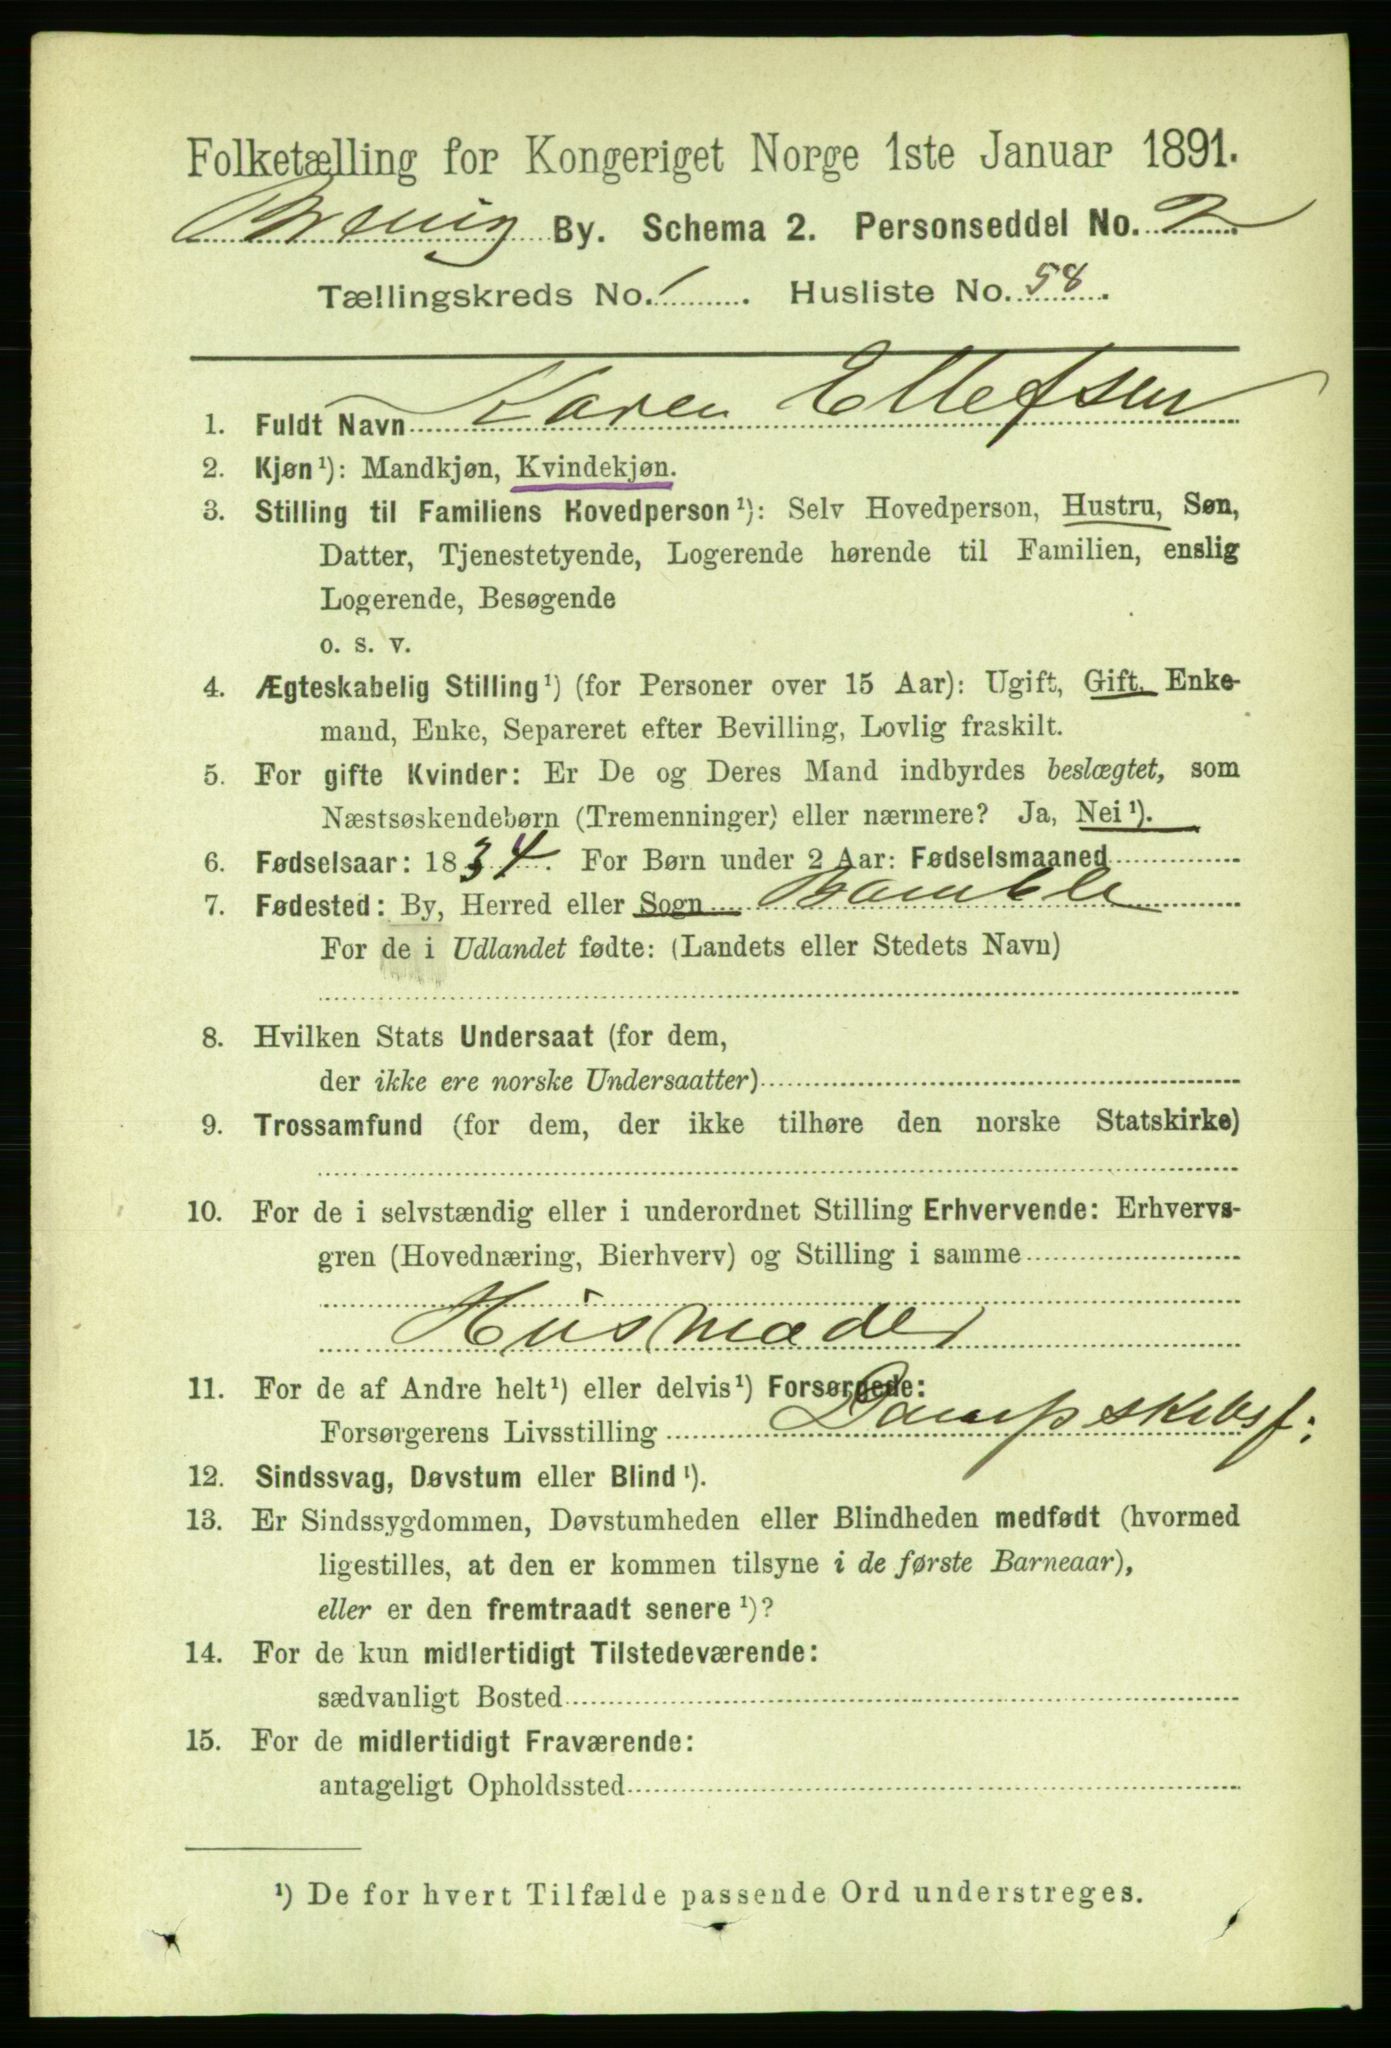 Folketælling for Kongeriget Norge 1ste Januar 1891.
Brevig By. Schema 2. Personseddel No. 2
Tællingskreds No. 1. Husliste No. 58.
1. Fuldt Navn Karen Ellefsen
2. Kjøn ¹): Mandkjøn, Kvindekjøn.
3. Stilling til Familiens Hovedperson ¹): Selv Hovedperson, Hustru, Søn,
Datter, Tjenestetyende, Logerende hørende til Familien, enslig
Logerende, Besøgende
o. s. v.
4. Ægteskabelig Stilling ¹) (for Personer over 15 Aar): Ugift, Gift, Enke-
mand, Enke, Separeret efter Bevilling, Lovlig fraskilt.
5. For gifte Kvinder: Er De og Deres Mand indbyrdes beslægtet, som
Næstsøskendebørn (Tremenninger) eller nærmere? Ja, Nei ¹).
6. Fødselsaar: 1834. For Børn under 2 Aar: Fødselsmaaned
7. Fødested: By, Herred eller Sogn Bamble
For de i Udlandet fødte: (Landets eller Stedets Navn)
8. Hvilken Stats Undersaat (for dem,
der ikke ere norske Undersaatter)
9. Trossamfund (for dem, der ikke tilhøre den norske Statskirke)
10. For de i selvstændig eller i underordnet Stilling Erhvervende: Erhvervs-
gren (Hovednæring, Bierhverv) og Stilling i samme
Husmoder
11. For de af Andre helt ¹) eller delvis ¹) Forsørgede:
Forsørgerens Livsstilling Dampskibsf:
12. Sindssvag, Døvstum eller Blind ¹).
13. Er Sindssygdommen, Døvstumheden eller Blindheden medfødt (hvormed
ligestilles, at den er kommen tilsyne i de første Barneaar),
eller er den fremtraadt senere ¹)?
14. For de kun midlertidigt Tilstedeværende:
sædvanligt Bosted
15. For de midlertidigt Fraværende:
antageligt Opholdssted
¹) De for hvert Tilfælde passende Ord understreges.